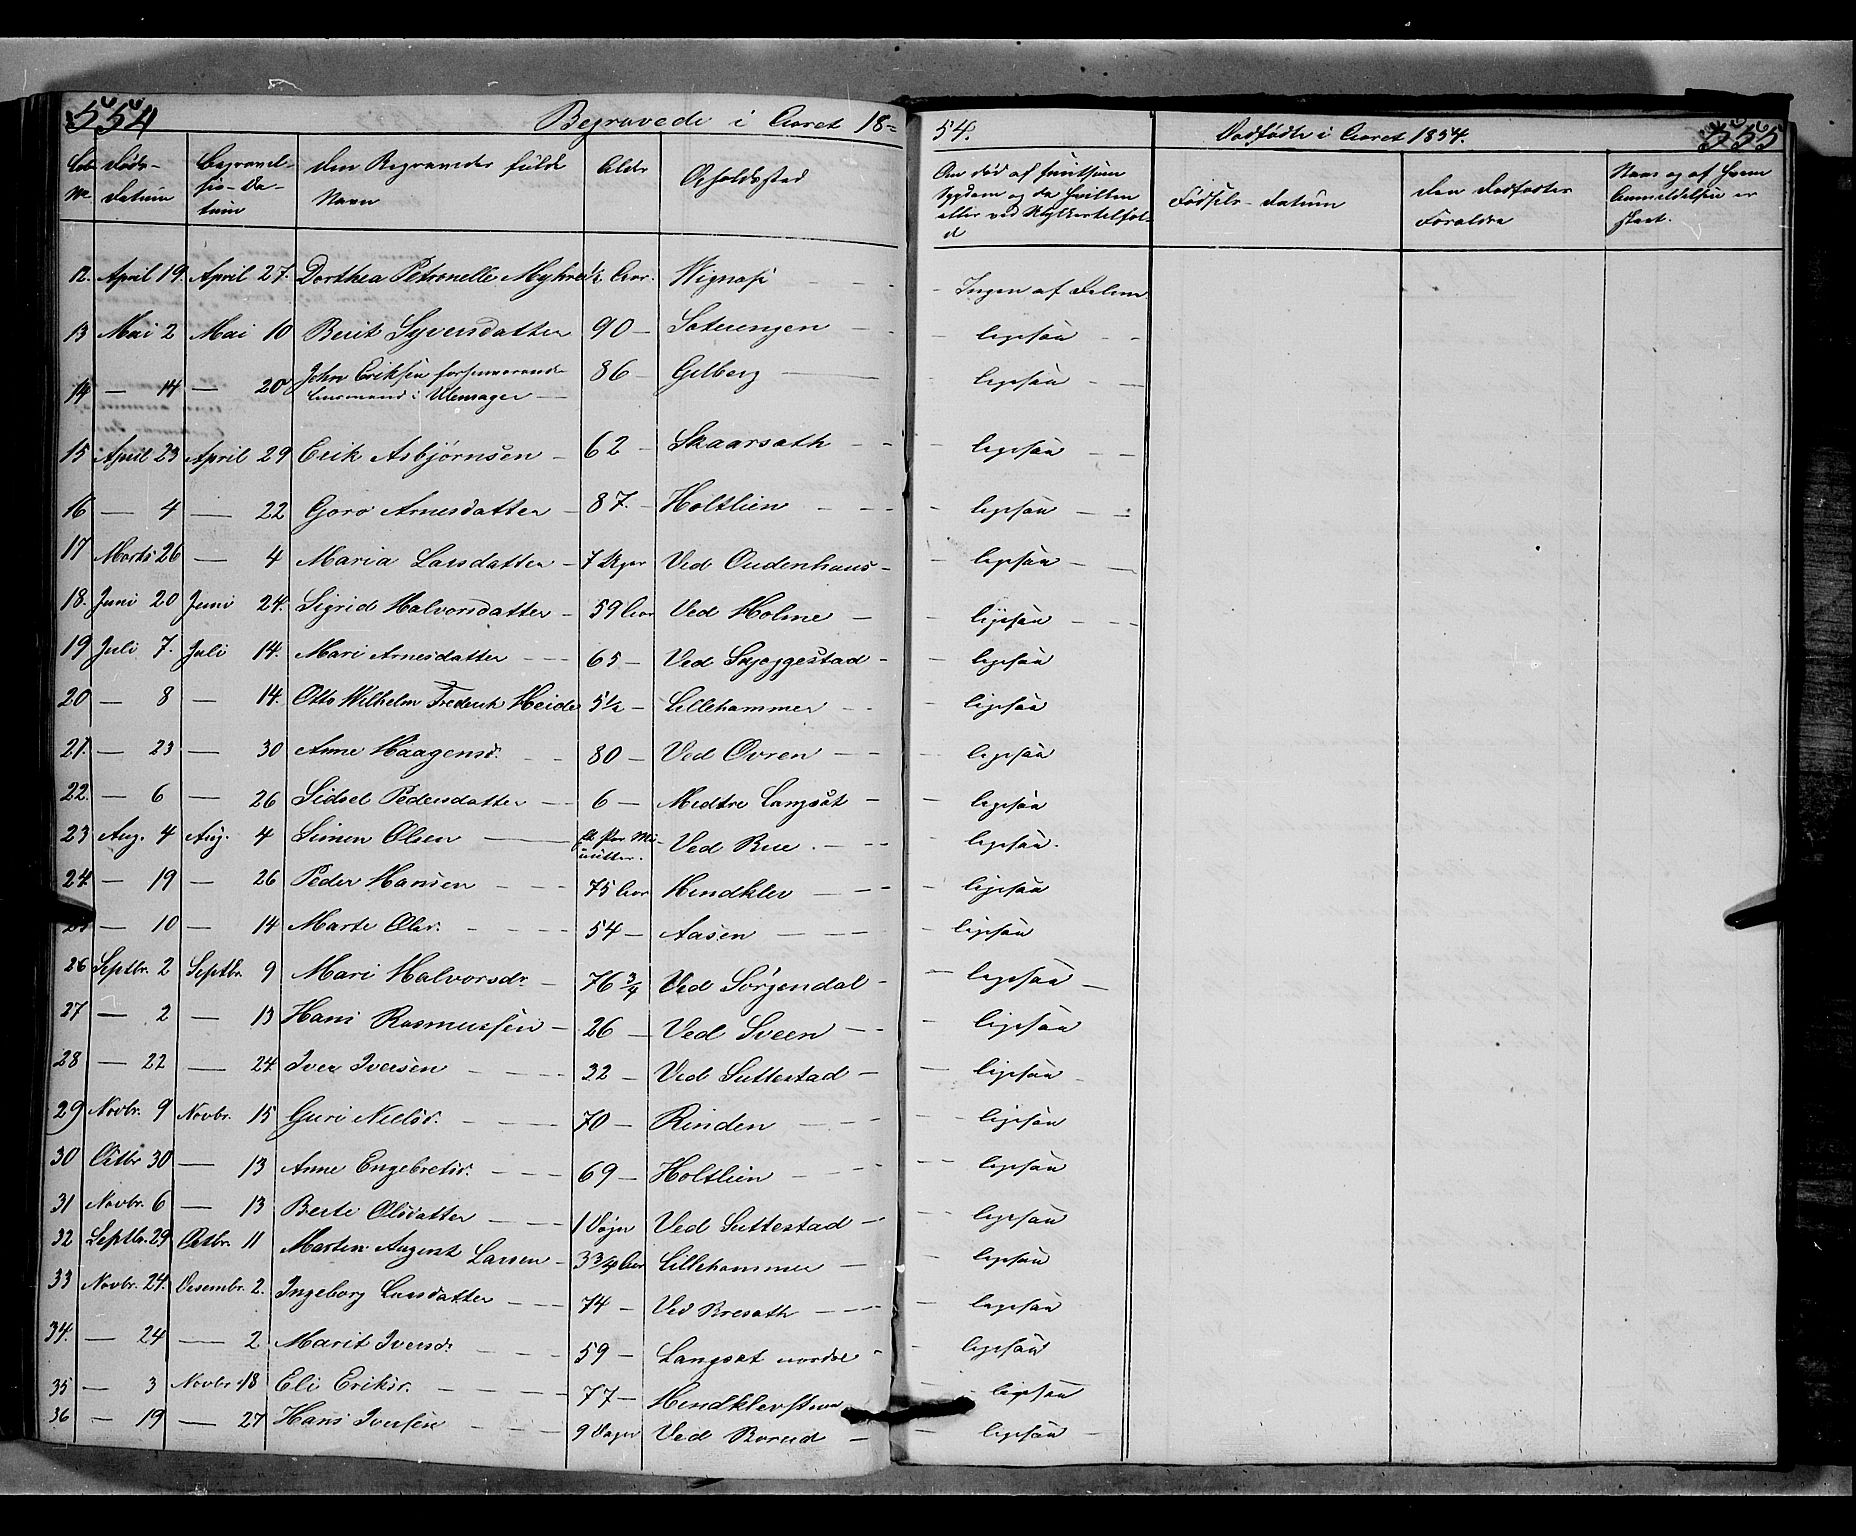 554 Begravede i Aaret 18=
54. Dødfødte i Aaret 1854. 555
Løb. No. Døds-Datum Begravelses-Datum Den Begravedes fulde Navn Alder Opholdsstad
Fødsels-Datum Den Dødfødtes Forældre
12. April 19. April 27. Dorthea Petronelle Myhre ½ Aar. Ingen af Delene
13 Mai 2 Mai 10 Berit Syversdatter 90 — ligesaa
14 — 14 — 20 John Eriksen forhenværende
Lensmand i Ullensager — 86 — Gilberg — ligesaa
15 April 23 April 29 Erik Asbjørnsen — 62 — Skaarsæth — ligesaa
16 — 4 — 22 Goro Arnesdatter — 87. — Holtlien — ligesaa
17 Marts 26 — 4 Maria Larsdatter — 7 Uger Ved Oudenhaus — ligesaa
18. Juni 20 Juni 24. Sigrid Halvorsdatter — 59 Aar Ved Holme — ligesaa
19 Juli 7. Juli 14. Mari Arnesdatter — 65 — Ved Skjøggestad — ligesaa
20 — 8 — 14. Otto Wilhelm Frederik Heide 5½ — Lillehammer — ligesaa
21. — 23 — 30 Anne Haagensd. — 80 — Ved Ovren — ligesaa
22. — 6 — 26 Sidsel Pedersdatter — 6 — Medtre Langsæt — ligesaa
23 Aug. 4 Aug. 4 Simen Olsen — et Par Minutter. Ved Bue. — ligesaa.
24. — 19 — 26 Peder Hansen — 75 Aar Hendklev — ligesaa
25 — 10 — 14 Marte Olsd. — 54 — Aasen — ligesaa
26 Septbr. 2 Septbr. 9 Mari Halvorsdr — 76 3/4 Ved Sørgendal — ligesaa
27 — 2 — 13 Hans Rasmussen — 26 — Ved Sveen — ligesaa
28 — 22 — 24 Iver Iversen — 32 — Ved Suttestad — ligesaa
29 Novbr. 9 Novbr. 15 Guri Nielsd. — 70 — Rinden — ligesaa
30 Octbr 30 — 13 Anne Engebretsd. — 69 — Holtlien — ligesaa
31 Novbr. 6 — 13 Berte Olsdatter — 1 Døgn Ved Suttestad — ligesaa
32 Septbr. 29 Octbr. 11 Morten August Larsen — 3 3/4 Aar Lillehammer — ligesaa
33 Novbr. 24. Desembr. 2. Ingeborg Larsdatter — 74 — Ved Bresæth — ligesaa
34. — 24 — 2 Marit Iversdr — 59 — Langsæt nordre — ligesaa
35 — 3 Novbr. 18 Eli Eriksd. — 77 — ligesaa
36 — 19 — 27 Hans Iversen 9 Dager Ved Borud — ligesaa